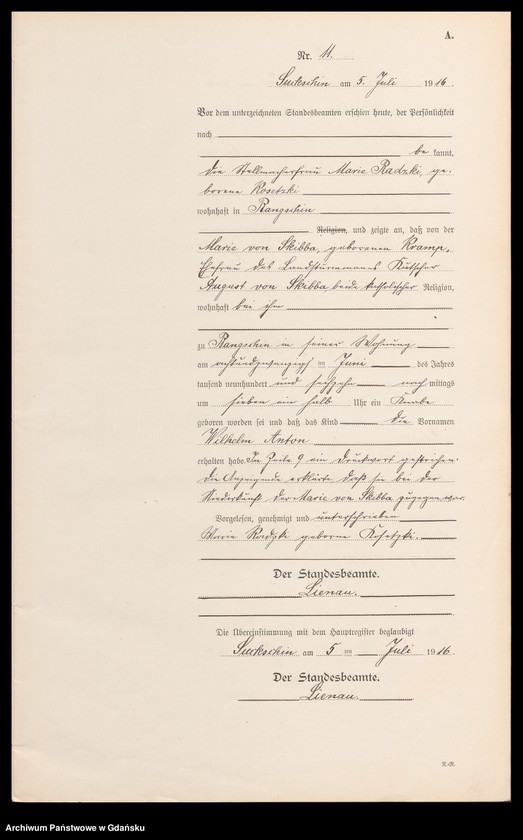 A.
Nr. 11.
Suckschin am 5. Juli 1916.
Vor dem unterzeichneten Standesbeamten erschien heute, der Persönlichkeit
nach
be kannt,
die Stellmacherfrau Marie Radzki, ge-
borene Kosetzki
wohnhaft in Rangschin
Religion, und zeigte an, daß von der
Marie von Skibba, geborenen Kramp,
Ehefrau des Landsturmmanns Kutscher
August von Skibba, beide katholischer Religion,
wohnhaft bei ihm
zu Rangschin in seiner Wohnung
am achtundzwanzigsten Juni des Jahres
tausend neunhundert und sechzehn nach mittags
um sieben ein halb Uhr ein Knabe
geboren worden sei und daß das Kind die Vornamen
Wilhelm Anton
erhalten habe. In Zeile 9 ein Druckwort gestrichen.
Die Anzeigende erklärte, daß sie bei der
Niederkunft der Marie von Skibba zugegen war.
Vorgelesen, genehmigt und unterschrieben
Marie Radzki geborne Kosetzki.
Der Standesbeamte.
Lienau.
Die Übereinstimmung mit dem Hauptregister beglaubigt
Suckschin am 5 ten Juli 1916.
Der Standesbeamte.
Lienau.
Archiwum Państwowe w Gdańsku